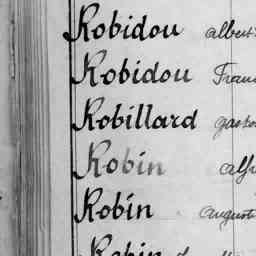 Robidou albert
Robidou Fran
Robillard gaston
Robin alfr
Robin august
Robin